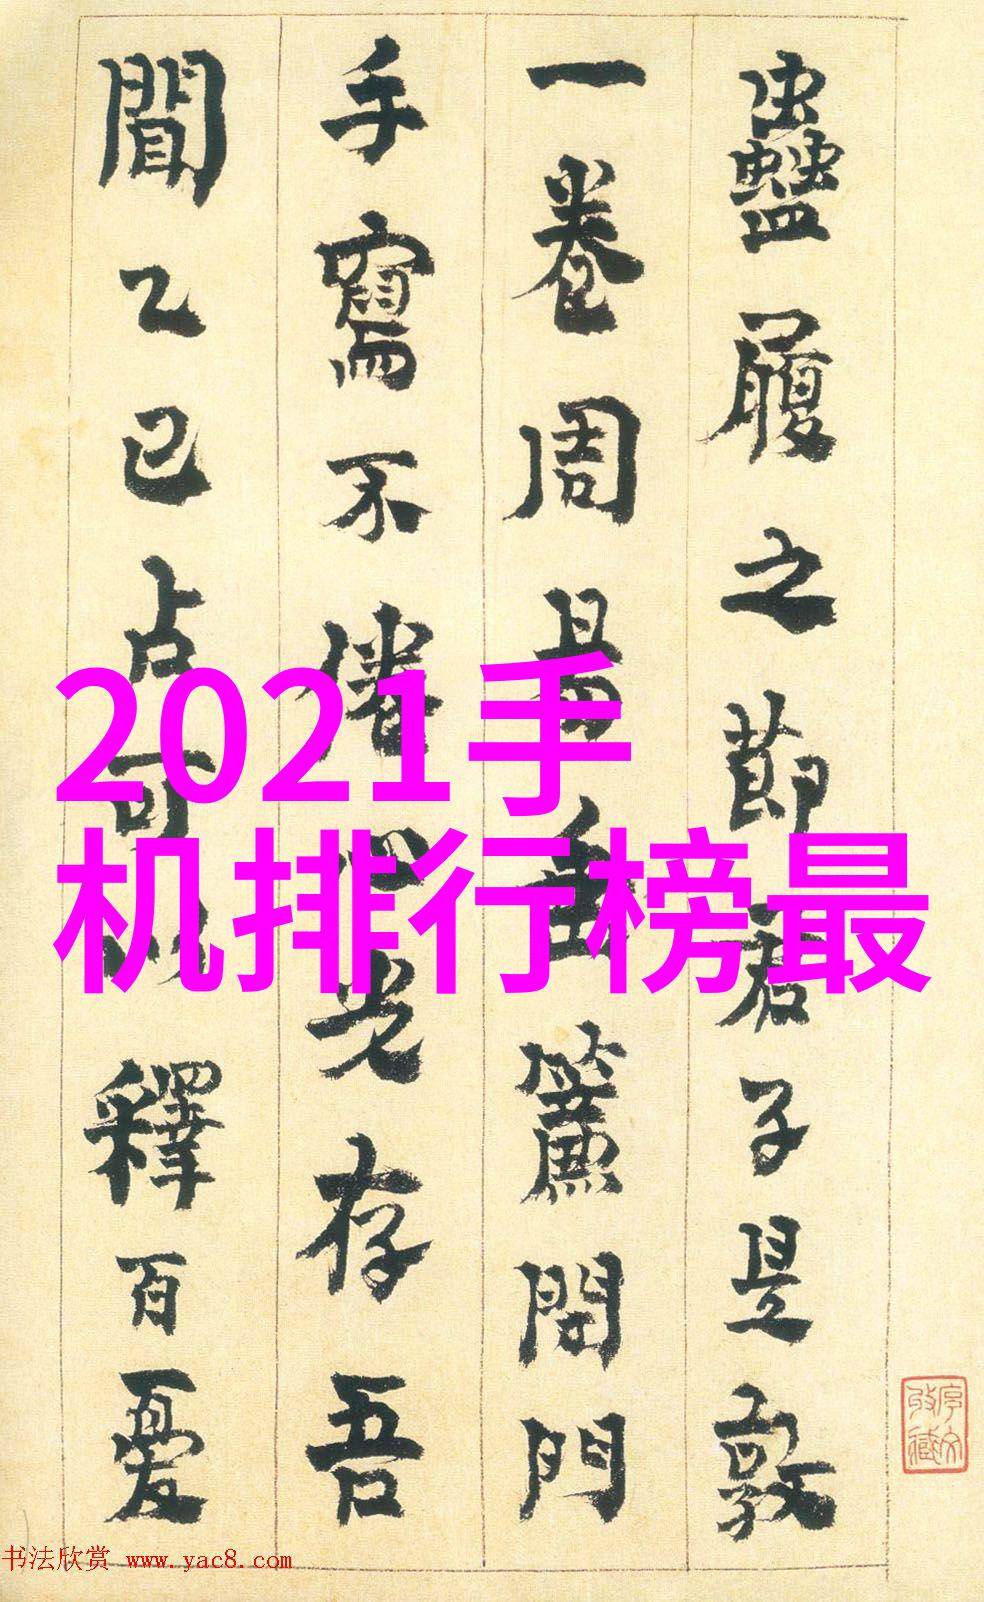 蠱履之節君子是敦
一卷周易垂簾閉門
手寫不倦心光存吾
聞乙巳占可以釋百憂
2021手
机排行榜最
书法欣赏 www.yac8.com